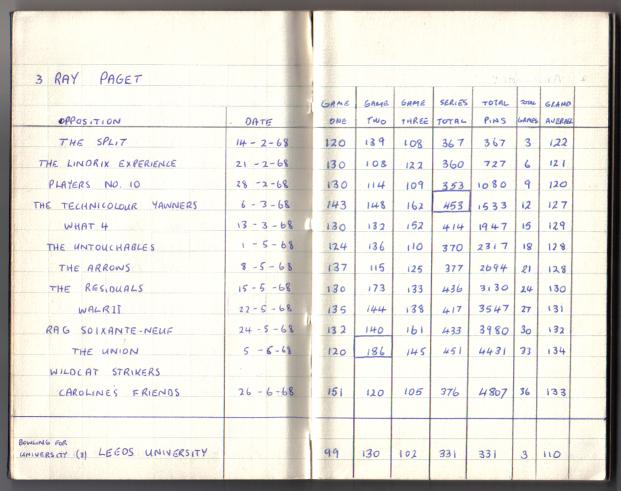 3 RAY PAGET
OPPOSITION DATE GAME ONE GAME TWO GAME THREE SERIES TOTAL TOTAL PINS TOTAL GAMES GRAND AVERAGE
THE SPLIT 14-2-68 120 139 108 367 367 3 122
THE LINDRIX EXPERIENCE 21-2-68 130 108 122 360 727 6 121
PLAYERS NO. 10 28-2-68 130 114 109 353 1080 9 120
THE TECHNICOLOUR YAWNERS 6-3-68 143 148 162 453 1533 12 127
WHAT 4 13-3-68 130 132 152 414 1947 15 129
THE UNTOUCHABLES 1-5-68 124 136 110 370 2317 18 128
THE ARROWS 8-5-68 137 115 125 377 2694 21 128
THE RESIDUALS 15-5-68 130 173 133 436 3130 24 130
WALRII 22-5-68 135 144 138 417 3547 27 131
RAG SOIXANTE-NEUF 24-5-68 132 140 161 433 3980 30 132
THE UNION 5-6-68 120 186 145 451 4431 33 134
WILDCAT STRIKERS
CAROLINE'S FRIENDS 26-6-68 151 120 105 376 4807 36 133
BOWLING FOR
UNIVERSITY (3) LEEDS UNIVERSITY 99 130 102 331 331 3 110